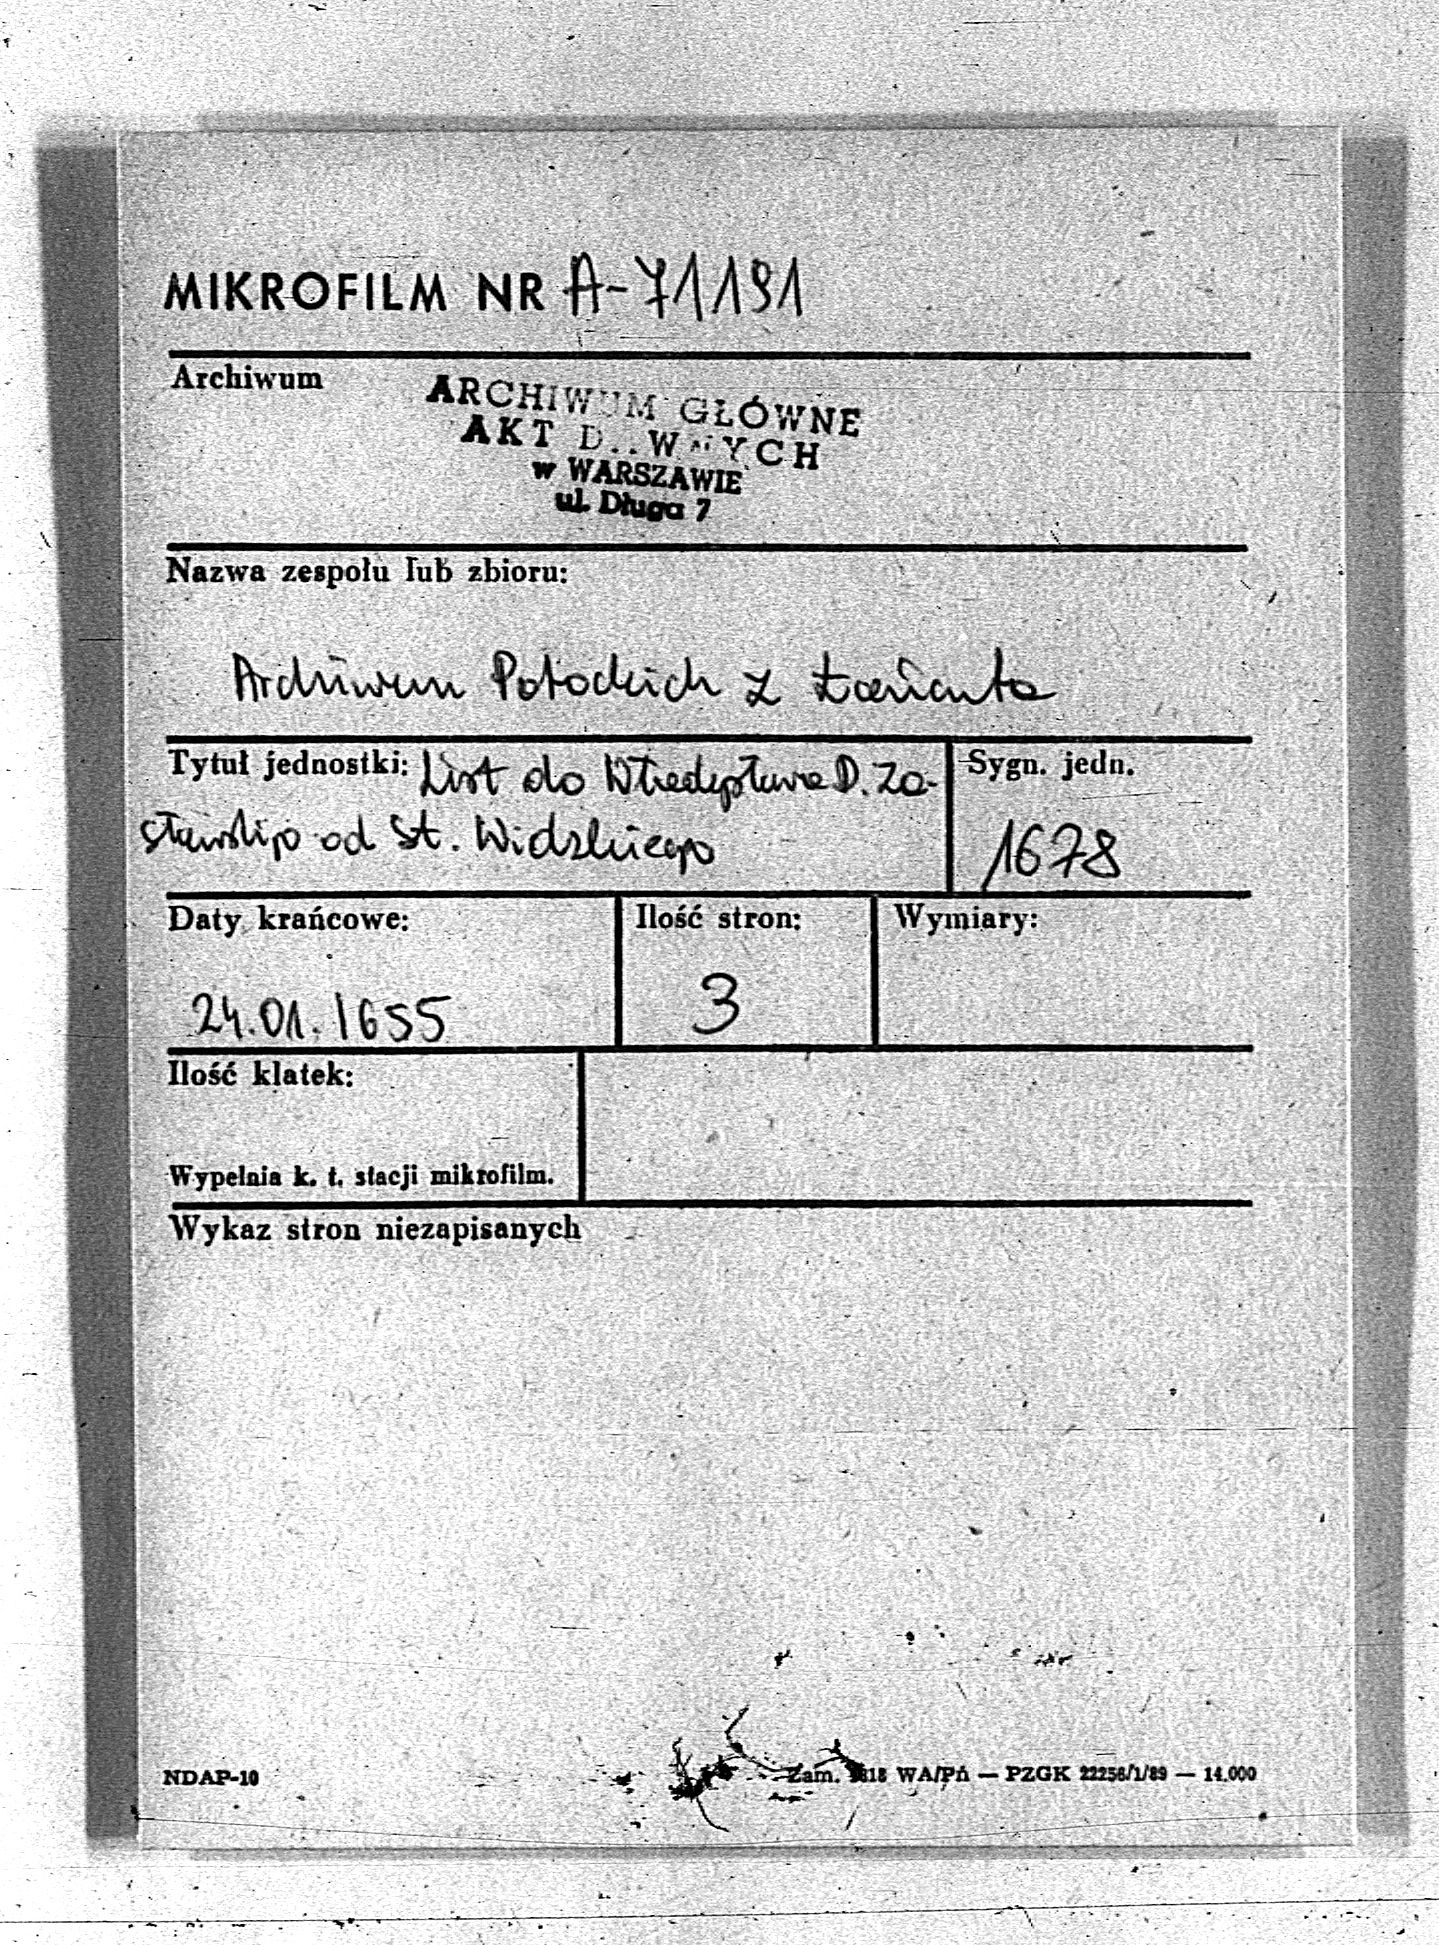 MIKROFILM NR A-71191
Archiwum
ARCHIWUM GŁÓWNE
AKT D..W..YCH
w WARSZAWIE
ul. Długa 7
Nazwa zespołu lub zbioru:
Archiwum Potockich z Łańcuta
Tytuł jednostki: List do Władysława D. Za-
sławskiego od St. Widzkiego
Sygn. jedn.
1678
Daty krańcowe:
24.01.1655
Ilość stron:
3
Wymiary:
Ilość klatek:
Wypełnia k. t. stacji mikrofilm.
Wykaz stron niezapisanych
NDAP-10
Zam. WA/Pń — PZGK 22256/1/89 — 14.000